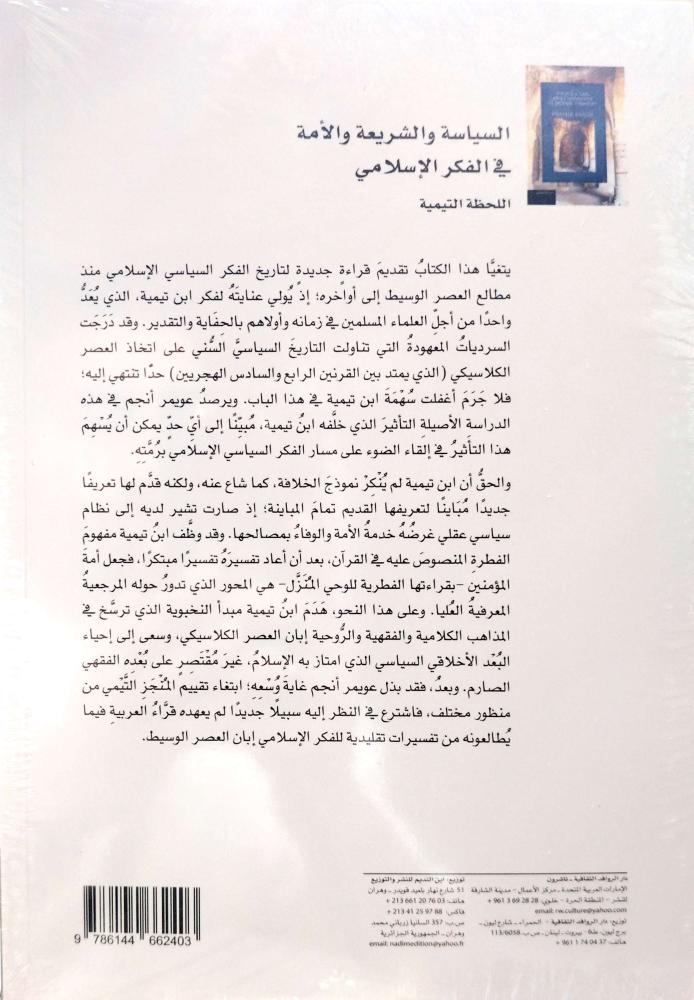 السياسة والشريعة والأمة
في الفكر الإسلامي
اللحظة التيمية
يتغيَّا هذا الكتابُ تقديمَ قراءةٍ جديدةٍ لتاريخ الفكر السياسي الإسلامي منذ
مطالع العصر الوسيط إلى أواخره؛ إذ يُولي عنايتَهُ لفكر ابن تيمية، الذي يُعَدُّ
واحدًا من أجلِّ العلماء المسلمين في زمانه وأولاهم بالحِفَاية والتقدير. وقد دَرَجَت
السردياتُ المعهودةُ التي تناولت التاريخَ السياسيَّ السُّني على اتخاذ العصر
الكلاسيكي (الذي يمتد بين القرنين الرابع والسادس الهجريين) حدًّا تنتهي إليه؛
فلا جَرَمَ أغفلت سُهْمَةَ ابن تيمية في هذا الباب. ويرصدُ عويمر أنجم في هذه
الدراسة الأصيلةِ التأثيرَ الذي خلَّفه ابنُ تيمية، مُبيِّنًا إلى أيِّ حدٍّ يمكن أن يُسْهِمَ
هذا التأثيرُ في إلقاء الضوء على مسار الفكر السياسي الإسلامي برُمَّتِهِ.
والحقُّ أن ابن تيمية لم يُنْكِرْ نموذجَ الخلافة، كما شاع عنه، ولكنه قدَّم لها تعريفًا
جديدًا مُبَاينًا لتعريفها القديم تمامَ المباينة؛ إذ صارت تشير لديه إلى نظام
سياسي عقلي غرضُهُ خدمةُ الأمة والوفاءُ بمصالحها. وقد وظَّف ابنُ تيمية مفهومَ
الفطرةِ المنصوصَ عليه في القرآن، بعد أن أعاد تفسيرَهُ تفسيرًا مبتكرًا، فجعل أمةَ
المؤمنين –بقراءتها الفطرية للوحي المُنَزَّل– هي المحور الذي تدورُ حوله المرجعيةُ
المعرفيةُ العُليا. وعلى هذا النحو، هَدَمَ ابنُ تيمية مبدأ النخبوية الذي ترسَّخ في
المذاهب الكلامية والفقهية والرُّوحية إبان العصر الكلاسيكي، وسعى إلى إحياء
البُعْد الأخلاقي السياسي الذي امتاز به الإسلامُ، غيرَ مُقْتَصِرٍ على بُعْدِه الفقهي
الصارم. وبعدُ، فقد بذل عويمر أنجم غايةَ وُسْعِهِ؛ ابتغاء تقييم المُنْجَزِ التَّيْمي من
منظور مختلف، فاشترع في النظر إليه سبيلًا جديدًا لم يعهده قرَّاءُ العربيةِ فيما
يُطالعونه من تفسيرات تقليدية للفكر الإسلامي إبان العصر الوسيط.
دار الروافد الثقافية – ناشرون
الإمارات العربية المتحدة – مركز الأعمال – مدينة الشارقة
للنشر – المنطقة الحرة – خلوي: 28 28 69 3 961 +
email: rw.culture@yahoo.com
توزيع: دار الروافد الثقافية – الحمراء – شارع ليون –
برج ليون، ط6 – بيروت – لبنان – ص.ب. 113/6058
هاتف: 37 04 74 1 961 +
توزيع: ابن النديم للنشر والتوزيع
51 شارع نهار بلعيد قويدر – وهران
هاتف: 03 76 20 661 213 +
فاكس: 88 97 25 41 213 +
ص.ب: 357 السانيا زرباني محمد
وهران – الجمهورية الجزائرية
email: nadimedition@yahoo.fr
9 786144 662403